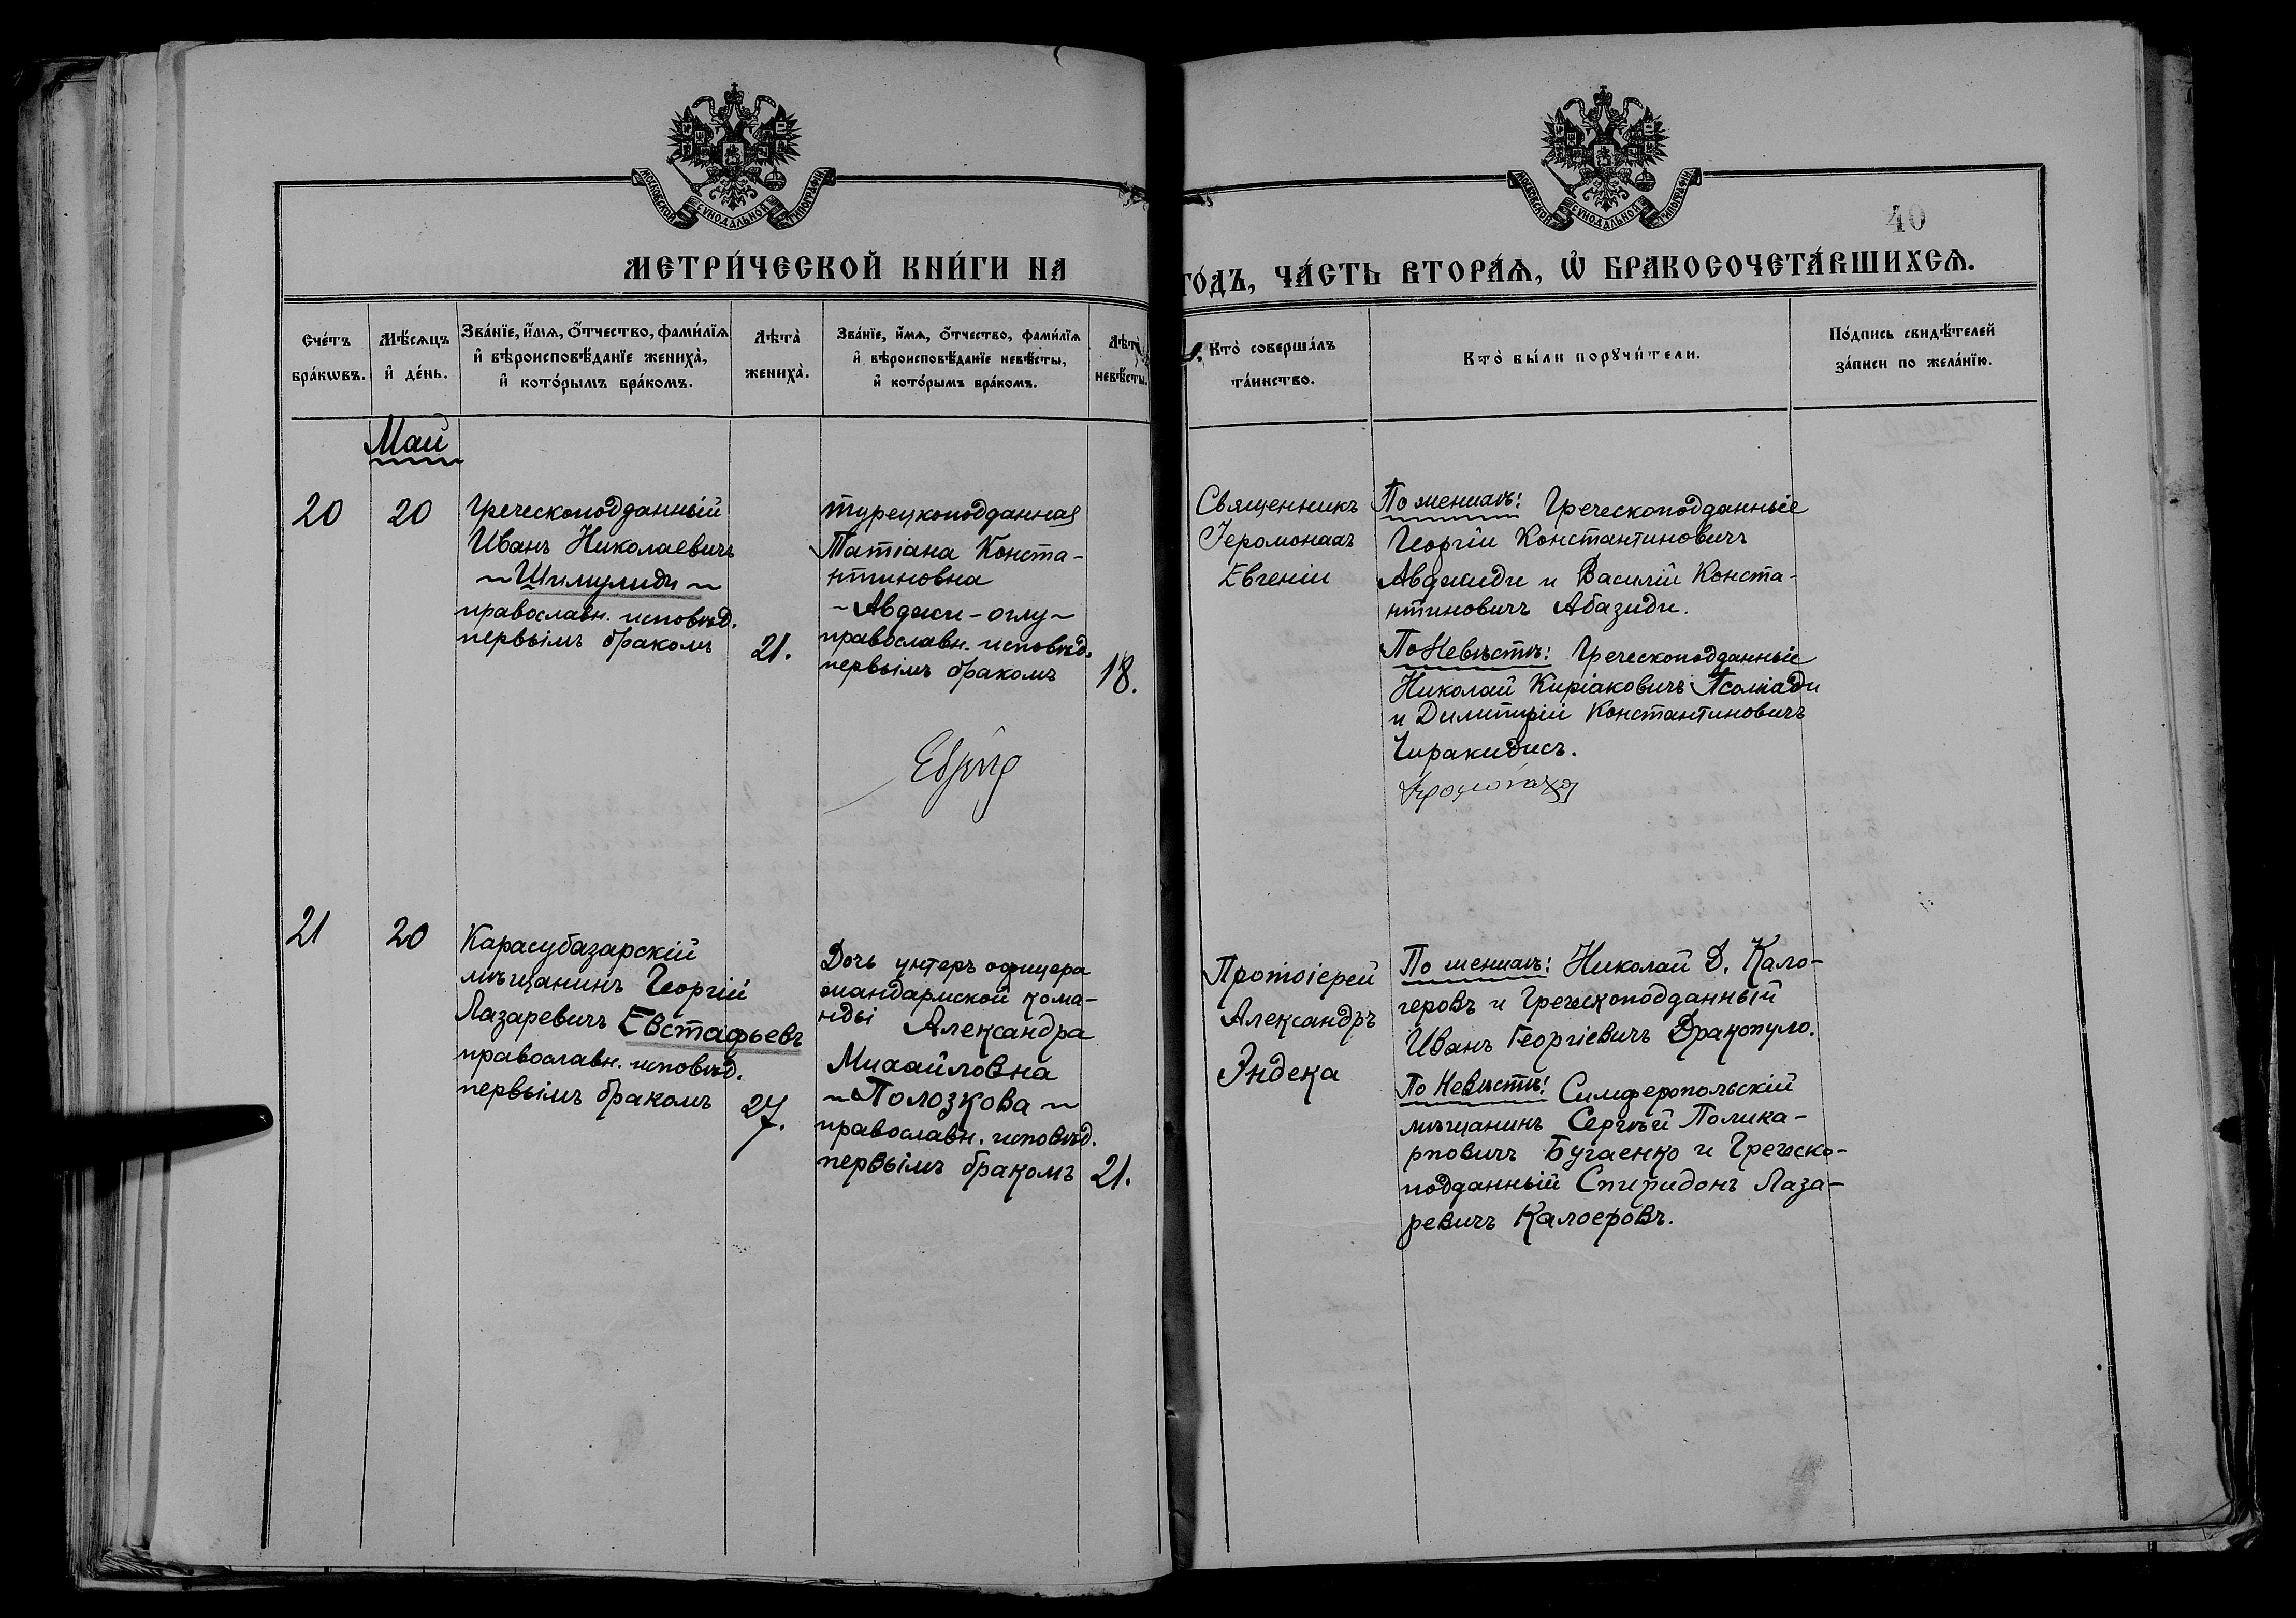 МОСКОВСКОЙ СѴНОДАЛЬНОЙ ТИПОГРАФІИ
МОСКОВСКОЙ СѴНОДАЛЬНОЙ ТИПОГРАФІИ
40
МЕТРИ́ЧЕСКОЙ КНИ́ГИ НА
ГО́ДЪ, ЧА́СТЬ ВТОРА́Ѧ, Ѡ҆ БРАКОСОЧЕТА́ВШИХСѦ.
Сче́тъ бра́кѡвъ.
Мѣ́сѧцъ и҆ де́нь.
Зва́нїе, и҆́мѧ, ѻ҆́тчество, фами́лїѧ
и҆ вѣроисповѣ́данїе жениха̀,
и҆ кото́рымъ бра́комъ.
Лѣта̀ жениха̀.
Зва́нїе, и҆́мѧ, ѻ҆́тчество, фами́лїѧ
и҆ вѣроисповѣ́данїе невѣ́сты,
и҆ кото́рымъ бра́комъ.
Лѣта̀ невѣ́сты.
Кто̀ соверша́лъ
та́инство.
Кто̀ бы́ли порꙋчи́тели.
По́дпись свидѣ́телей
за́писи по жела́нїю.
Май
20
20
Греческоподданный
Иванъ Николаевичъ
~Шимулиди~
православн. исповѣд.
первымъ бракомъ
21.
турецкоподданная
Татіана Конста-
нтиновна
~Авджи-оглу~
православн. исповѣд.
первымъ бракомъ
18.
Священникъ
Іеромонахъ
Евгеній
По женихѣ: Греческоподданные
Георгій Константиновичъ
Авджиди и Василій Конста-
нтиновичъ Абазиди.
По Невѣстѣ: Греческоподданные
Николай Киріаковичъ
и Димитрій Константиновичъ
Чиракидисъ.
21
20
Карасубазарскій
мѣщанинъ Георгій
Лазаревичъ Евстафьевъ
православн. исповѣд.
первымъ бракомъ
27.
Дочь унтеръ офицера
жандармской кома-
нды Александра
Михайловна
~Полозкова~
православн. исповѣд.
первымъ бракомъ
21.
Протоіерей
Александръ
Эндека
По женихѣ: Николай Д. Кало-
геровъ и Греческоподданный
Иванъ Георгіевичъ Дракопуло.
По Невѣстѣ: Симферопольскій
мѣщанинъ Сергѣй Полика-
рповичъ Бугаенко и Греческо-
подданный Спиридонъ Лаза-
ревичъ Калоеровъ.